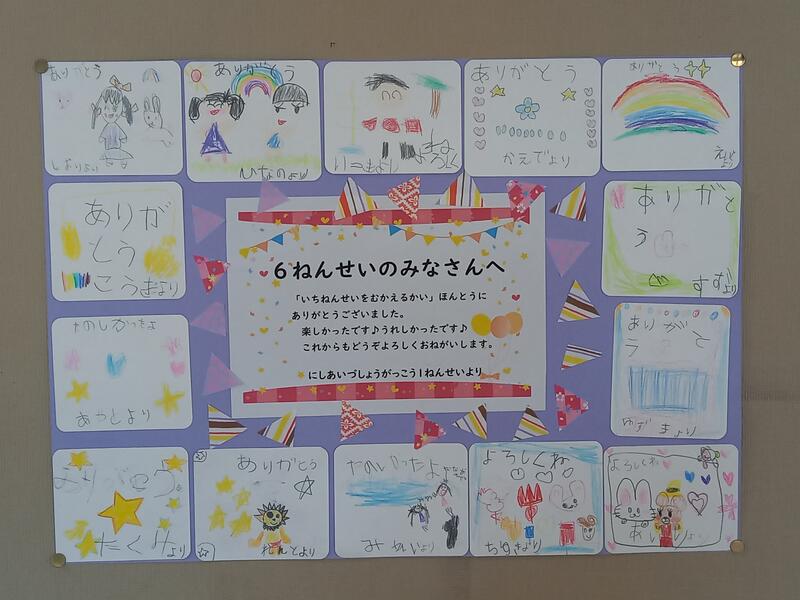 ありがとう
しおりより
ありがとう
ひなのより
よろしく
ありがとう
かえでより
ありがとう
えいとより
ありが
とう
こうきより
6ねんせいのみなさんへ
「いちねんせいをむかえるかい」ほんとうに
ありがとうございました。
楽しかったです♪うれしかったです♪
これからもどうぞよろしくおねがいします。
にしあいづしょうがっこう1ねんせいより
ありがと
う
すずより
たのしかったよ
あやとより
ありがと
う
ゆずきより
ありがとう
たくみより
ありがとう
れんとより
たのしかったよ
よろしくね
ちゆきより
よろしくね